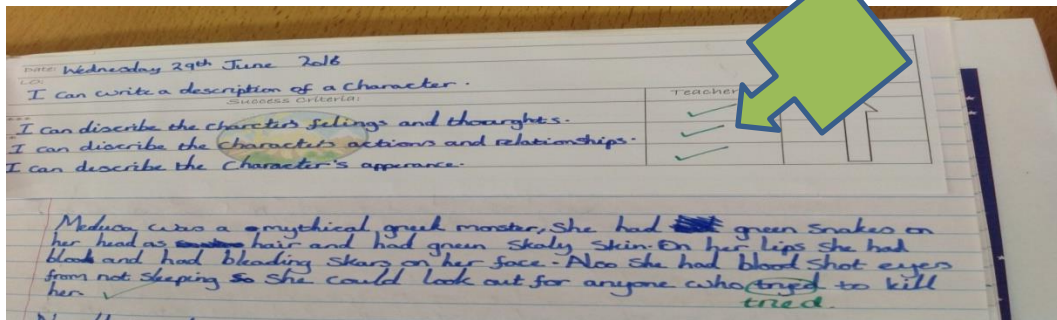 Date: Wednesday 29th June 2016
LO:
I can write a description of a character.
Success Criteria:
Teacher
I can discribe the charcters felings and thourghts.
I can discribe the characters actions and relationships.
I can describe the Character's apperance.
Medusa was a mythical greek monster, She had green snakes on
her head as hair and had green skaly skin. On her lips she had
blood and had bleading skars on her face. Also she had blood shot eyes
from not sleeping so she could look out for anyone who tryed to kill
her.
tried.